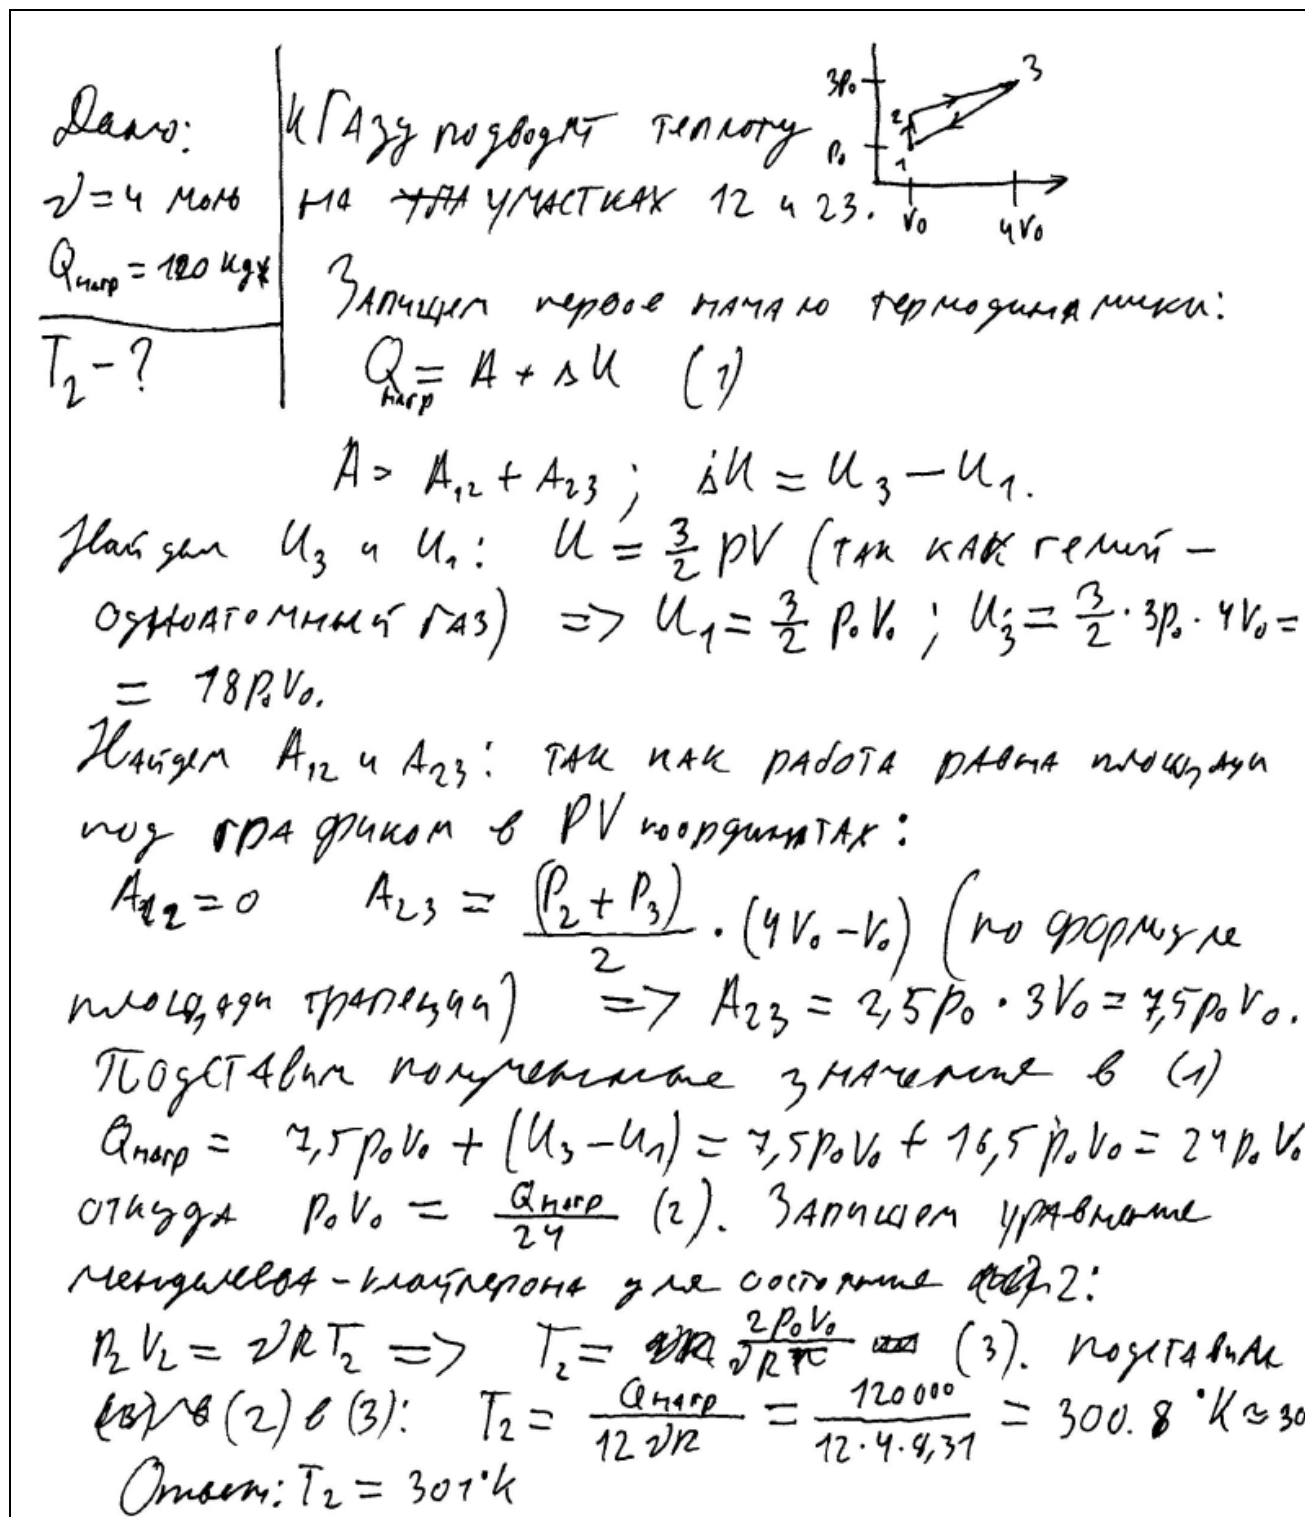 Дано:
ν = 4 моль
Qнагр = 120 кДж
T₂ - ?
К газу подводят теплоту
на участках 12 и 23.
3p₀
p₀
1
2
3
V₀
4V₀
Запишем первое начало термодинамики:
Qнагр = A + ΔU (1)
A = A₁₂ + A₂₃ ; ΔU = U₃ - U₁.
Найдем U₃ и U₁: U = 3/2 pV (так как гелий -
одноатомный газ) => U₁ = 3/2 p₀V₀ ; U₃ = 3/2 · 3p₀ · 4V₀ =
= 18p₀V₀.
Найдем A₁₂ и A₂₃: так как работа равна площади
под графиком в PV координатах:
A₁₂ = 0 A₂₃ = (P₂ + P₃)/2 · (4V₀ - V₀) (по формуле
площади трапеции) => A₂₃ = 2,5p₀ · 3V₀ = 7,5p₀V₀.
Подставим полученные значения в (1)
Qнагр = 7,5p₀V₀ + (U₃ - U₁) = 7,5p₀V₀ + 16,5p₀V₀ = 24p₀V₀
откуда p₀V₀ = Qнагр/24 (2). Запишем уравнение
менделеева-клайперона для состояние 2:
P₂V₂ = νRT₂ => T₂ = 2p₀V₀/νR (3). подставим
(2) в (3): T₂ = Qнагр/12νR = 120000/12·4·8,31 = 300.8 °K ≈ 30
Ответ: T₂ = 301°K